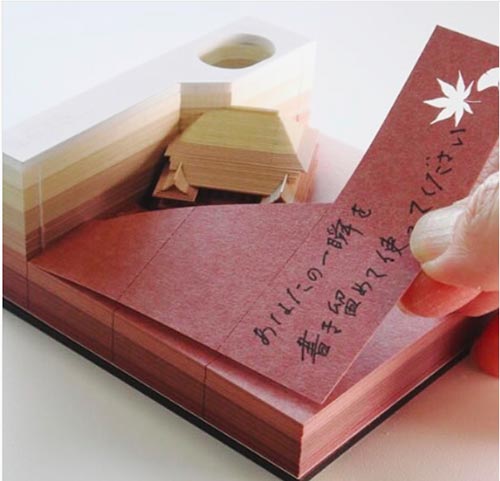 あなたの一瞬を
書き留めて使ってください